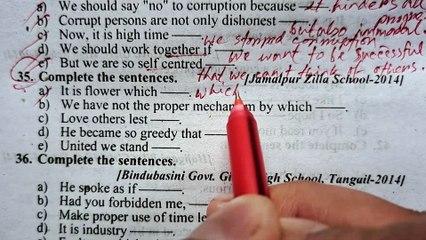 a) We should say "no" to corruption because it hinders all
b) Corrupt persons are not only dishonest but also immoral.
c) Now, it is high time — we stopped corruption
d) We should work together if we want to be successful
e) But we are so self centred that we can't think of others.
35. Complete the sentences. [Jamalpur Zilla School-2014]
a) It is flower which ——. which
b) We have not the proper mechanism by which ——.
c) Love others lest ——.
d) He became so greedy that ——
e) United we stand ——.
36. Complete the sentences.
[Bindubasini Govt. School, Tangail-2014]
a) He spoke as if ——.
b) Had you forbidden me, ——
c) Make proper use of time
d) It is industry ——